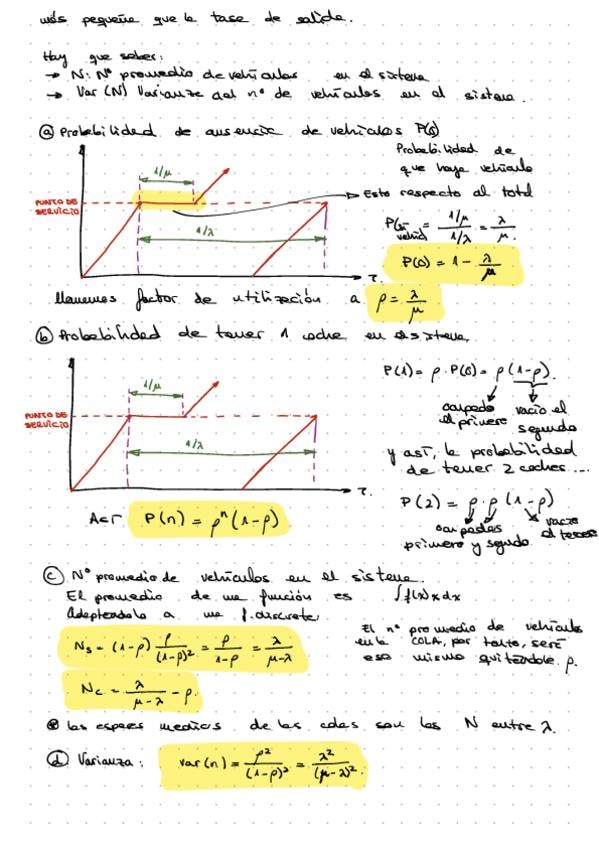 más pequeña que la tasa de salida.
Hay que saber:
→ N: Nº promedio de vehículos en el sistema
→ Var (N) Varianza del nº de vehículos en el sistema.
ⓐ Probabilidad de ausencia de vehículos P(0)
1/μ
PUNTO DE SERVICIO
1/λ
τ.
Probabilidad de
que haya vehículo
Esto respecto al total
P(si vehíc) = (1/μ)/(1/λ) = λ/μ.
P(0) = 1 - λ/μ
llamemos factor de utilización a ρ = λ/μ
ⓑ Probabilidad de tener 1 coche en el sistema.
1/μ
PUNTO DE SERVICIO
1/λ
τ.
P(1) = ρ·P(0) = ρ(1-ρ).
ocupado el primero
vacío el segundo
y así, la probabilidad
de tener 2 coches...
P(2) = ρ·ρ(1-ρ)
ocupados primero y segundo
vacío el tercero
Así P(n) = ρⁿ(1-ρ)
ⓒ Nº promedio de vehículos en el sistema.
El promedio de una función es ∫f(x)x dx
Adaptándolo a una f. discreta:
Ns = (1-ρ) ρ/(1-ρ)² = ρ/(1-ρ) = λ/(μ-λ)
Nc = λ/(μ-λ) - ρ.
El nº promedio de vehículos
en la COLA, por tanto, será
eso mismo quitándole ρ.
⊛ las esperas medias de las colas son las N entre λ.
ⓓ Varianza: var(n) = ρ²/(1-ρ)² = λ²/(μ-λ)².